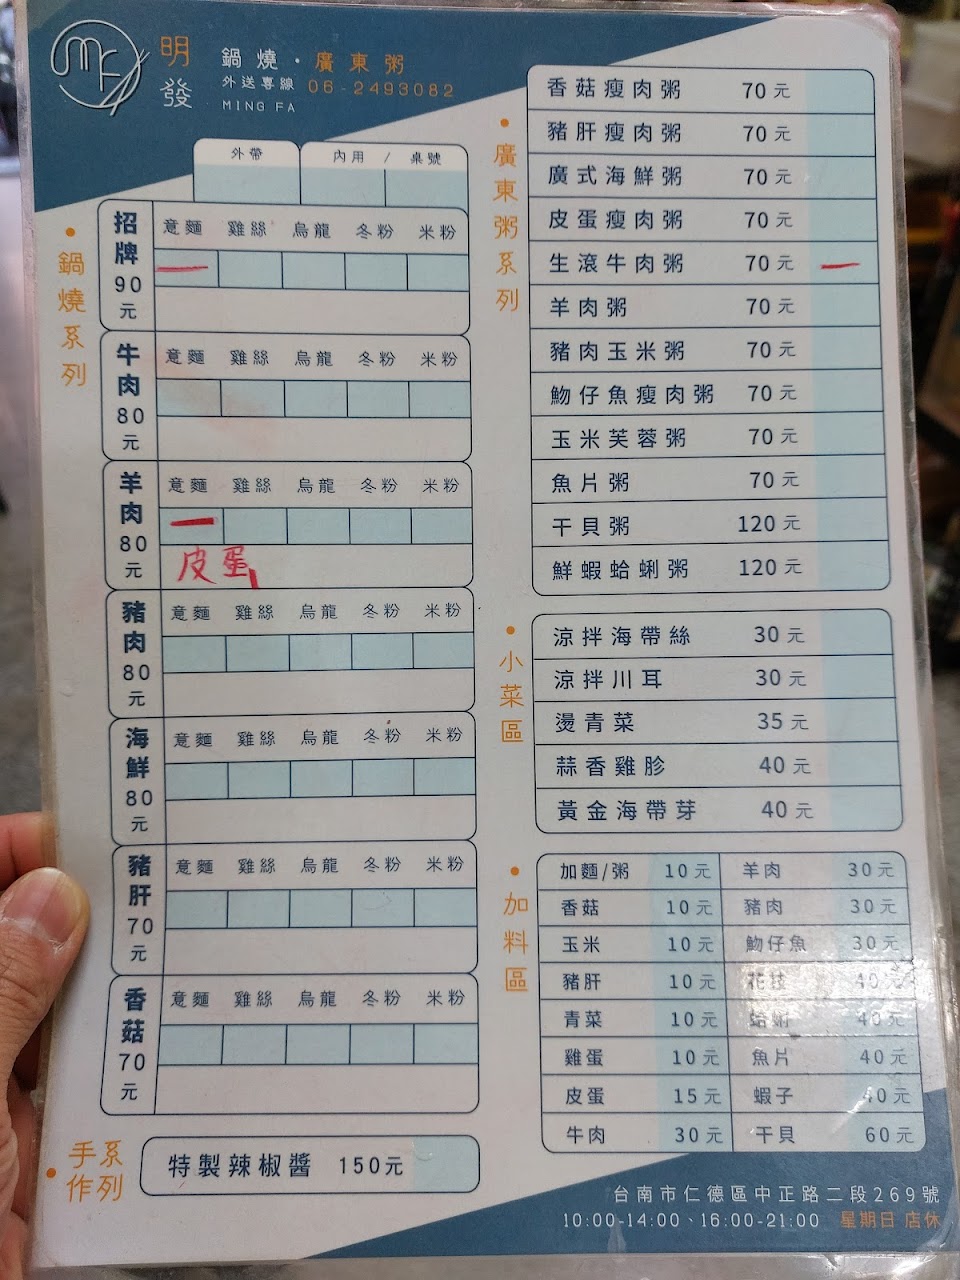 MF
明發
鍋燒・廣東粥
外送專線 06-2493082
MING FA
外帶 內用 / 桌號
・鍋燒系列
招牌 90元 意麵 雞絲 烏龍 冬粉 米粉
牛肉 80元 意麵 雞絲 烏龍 冬粉 米粉
羊肉 80元 意麵 雞絲 烏龍 冬粉 米粉
皮蛋
豬肉 80元 意麵 雞絲 烏龍 冬粉 米粉
海鮮 80元 意麵 雞絲 烏龍 冬粉 米粉
豬肝 70元 意麵 雞絲 烏龍 冬粉 米粉
香菇 70元 意麵 雞絲 烏龍 冬粉 米粉
・手作系列
特製辣椒醬 150元
・廣東粥系列
香菇瘦肉粥 70元
豬肝瘦肉粥 70元
廣式海鮮粥 70元
皮蛋瘦肉粥 70元
生滾牛肉粥 70元
羊肉粥 70元
豬肉玉米粥 70元
魩仔魚瘦肉粥 70元
玉米芙蓉粥 70元
魚片粥 70元
干貝粥 120元
鮮蝦蛤蜊粥 120元
・小菜區
涼拌海帶絲 30元
涼拌川耳 30元
燙青菜 35元
蒜香雞胗 40元
黃金海帶芽 40元
・加料區
加麵/粥 10元 羊肉 30元
香菇 10元 豬肉 30元
玉米 10元 魩仔魚 30元
豬肝 10元 花枝 40元
青菜 10元 蛤蜊 40元
雞蛋 10元 魚片 40元
皮蛋 15元 蝦子 40元
牛肉 30元 干貝 60元
台南市仁德區中正路二段269號
10:00-14:00、16:00-21:00 星期日 店休